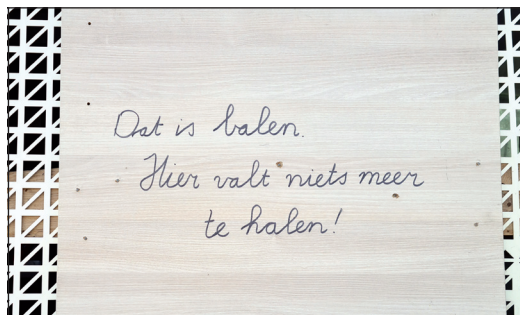 Dat is balen.
Hier valt niets meer
te halen!